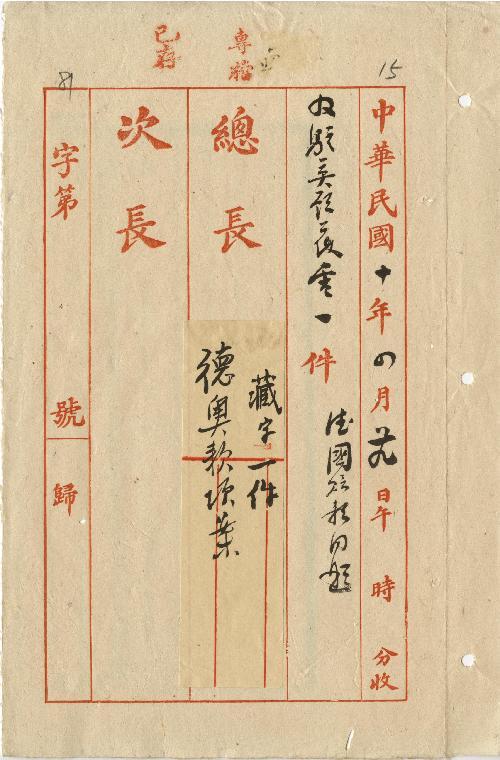 15
專檔
已存
中華民國十年四月廿九日午 時 分收
收駐英顧 電一件 德國賠款問題
總長
藏字一件
德奧款項案
次長
字第 號 歸